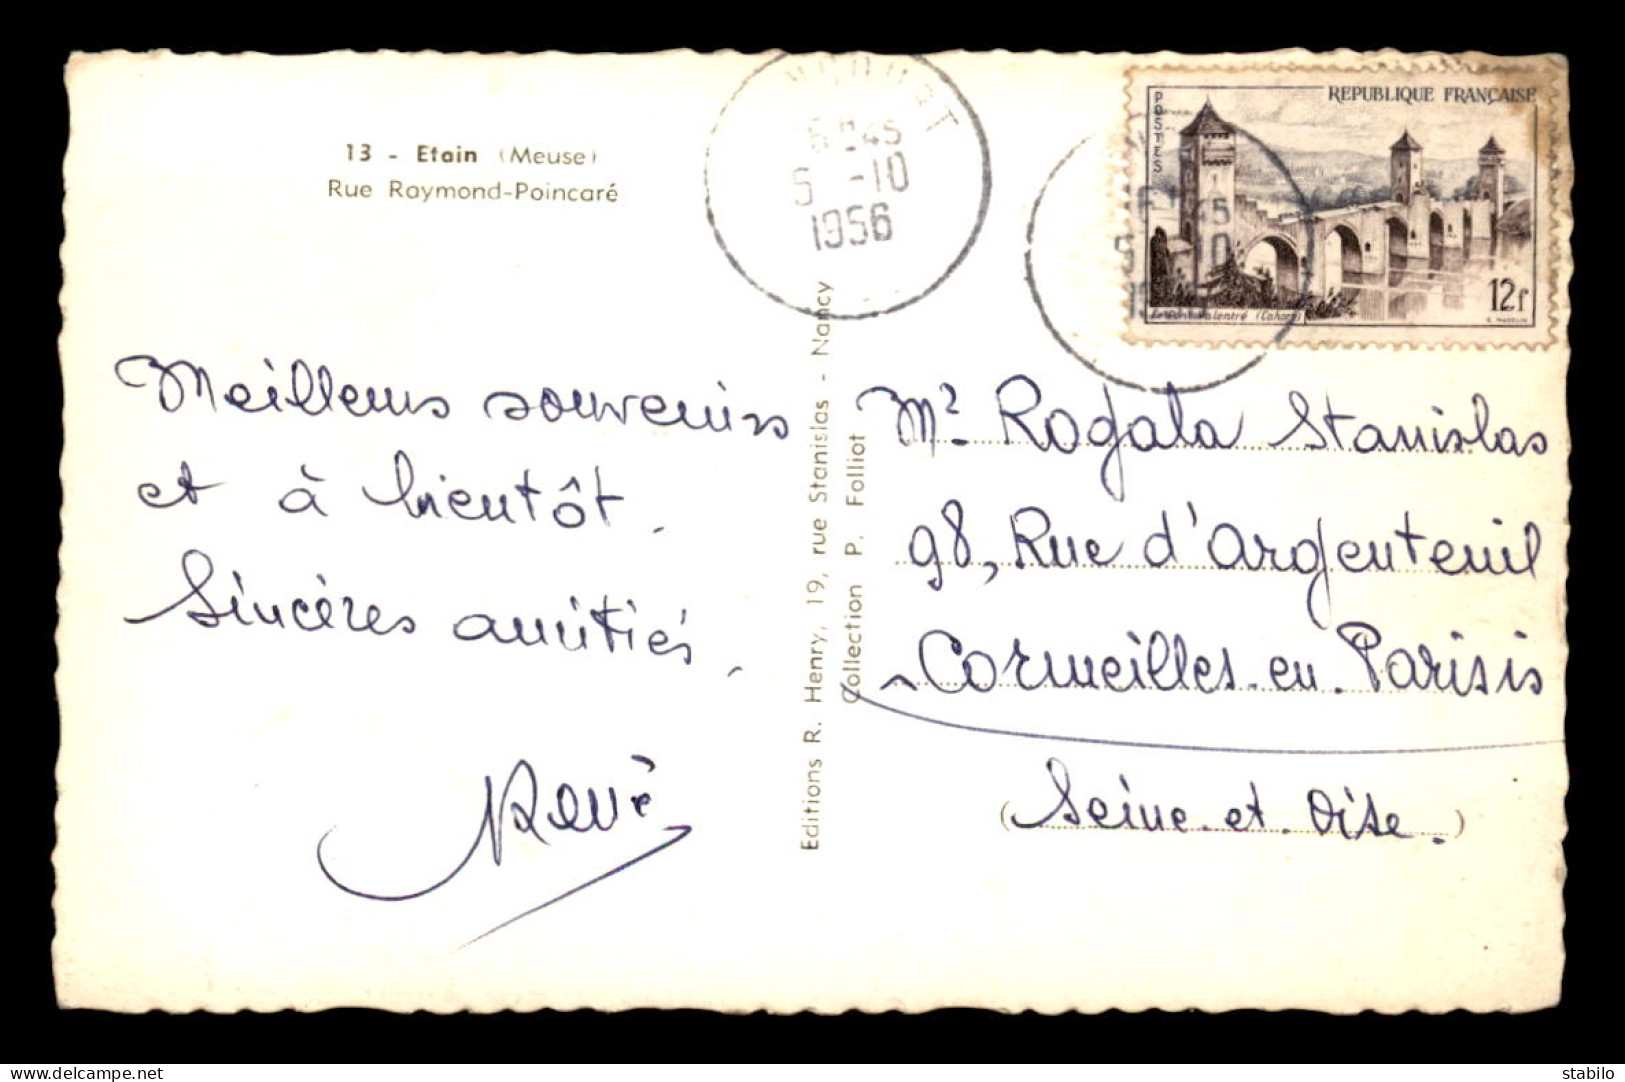 13 - Etain (Meuse)
Rue Raymond-Poincaré
Meilleurs souvenirs
et à bientôt.
Sincères amitiés.
René
Editions R. Henry, 19, rue Stanislas - Nancy
Collection P. Folliot
45
5 -10
1956
POSTES
REPUBLIQUE FRANÇAISE
12f
Le Pont Valentré (Cahors)
Mr Rogala Stanislas
98, Rue d'Argenteuil
Cormeilles-en-Parisis
(Seine-et-Oise.)
www.delcampe.net
stabilo